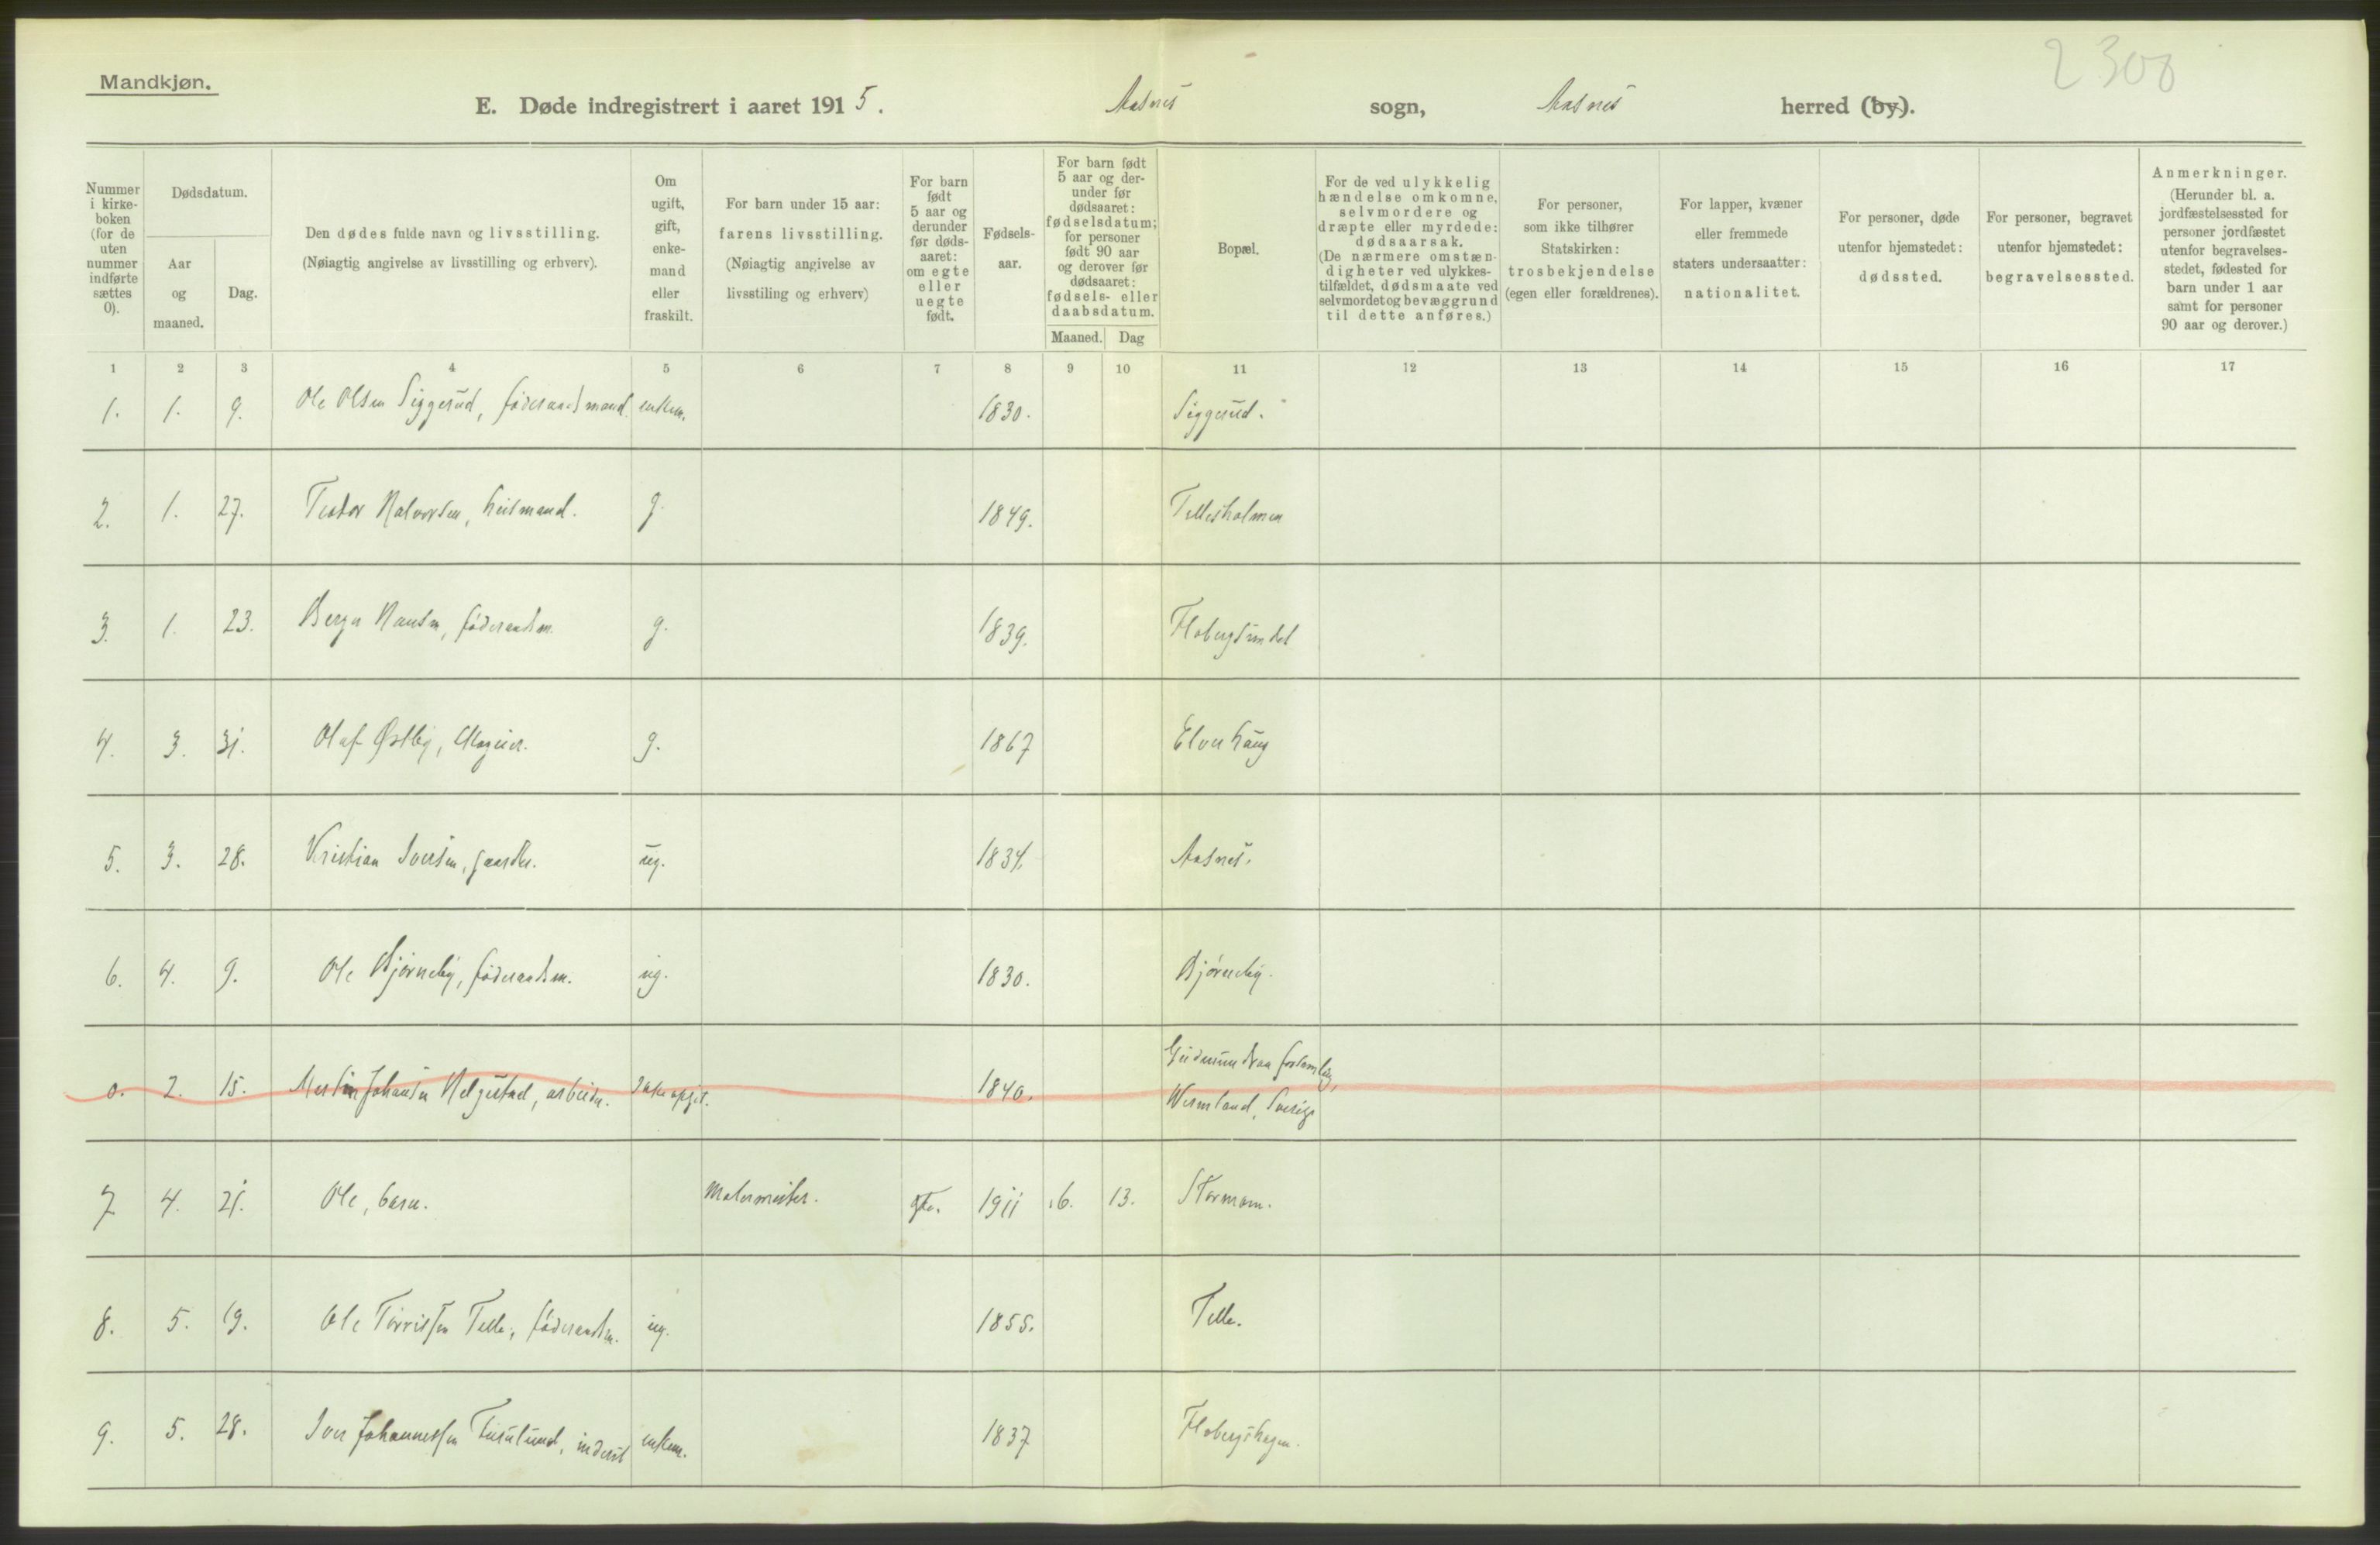 2300
Mandkjøn.
E. Døde indregistrert i aaret 1915. Aasnes sogn, Aasnes herred (by).
Nummer i kirkeboken (for de uten nummer indførte sættes 0).
Dødsdatum.
Aar og maaned.
Dag.
Den dødes fulde navn og livsstilling.
(Nøiagtig angivelse av livsstilling og erhverv).
Om ugift, gift, enkemand eller fraskilt.
For barn under 15 aar:
farens livsstilling.
(Nøiagtig angivelse av
livsstiling og erhverv)
For barn født 5 aar og derunder før dødsaaret: om egte eller uegte født.
Fødselsaar.
For barn født 5 aar og derunder før dødsaaret: fødselsdatum; for personer født 90 aar og derover før dødsaaret: fødsels- eller daabsdatum.
Maaned. Dag
Bopæl.
For de ved ulykkelig hændelse omkomne, selvmordere og dræpte eller myrdede: dødsaarsak. (De nærmere omstændigheter ved ulykkestilfældet, dødsmaate ved selvmordet og bevæggrund til dette anføres.)
For personer, som ikke tilhører Statskirken: trosbekjendelse (egen eller forældrenes).
For lapper, kvæner eller fremmede staters undersaatter: nationalitet.
For personer, døde utenfor hjemstedet: dødssted.
For personer, begravet utenfor hjemstedet: begravelsessted.
Anmerkninger. (Herunder bl. a. jordfæstelsessted for personer jordfæstet utenfor begravelsesstedet, fødested for barn under 1 aar samt for personer 90 aar og derover.)
1 2 3 4 5 6 7 8 9 10 11 12 13 14 15 16 17
1. 1. 9. Ole Olsen Siggerud, føderaadsmand. enkem. 1830. Siggerud.
2. 1. 27. Teodor Halvorsen, husmand. g. 1849. Tellesholmen
3. 1. 23. Berger Hansen, føderaadsm. g. 1839. Flobergsundet
4. 3. 31. Olaf Østby, g. 1867 Elverhaug
5. 3. 28. Kristian Iversen, gaardbr. ug. 1834. Aasnes.
6. 4. 9. Ole Bjørneby, føderaadsm. ug. 1830. Bjørneby.
0. 2. 15. Martin Johansen Helgestad, arbeider. Ikke opgit. 1840. forsamling,
Wermland, Sverige
7 4. 21. Ole, barn. Malermester. gte. 1911 6. 13. Stormoen.
8. 5. 19. Ole Torrissen Telle, føderaadsm. ug. 1855. Telle.
9. 5. 28. Iver Johannessen inderst enkem. 1837 Flobergshagen.